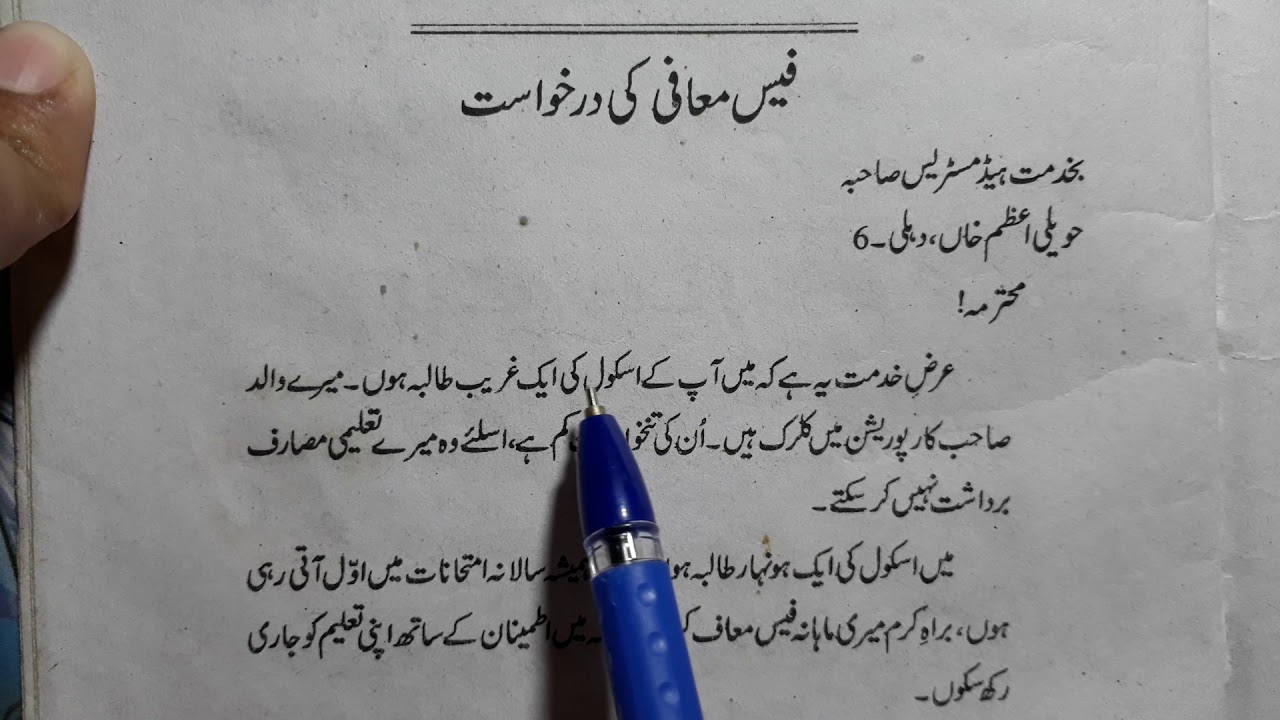 فیس معافی کی درخواست
بخدمت ہیڈ مسٹریس صاحبہ
حویلی اعظم خاں، دہلی۔6
محترمہ!
عرضِ خدمت یہ ہے کہ میں آپ کے اسکول کی ایک غریب طالبہ ہوں۔ میرے والد
صاحب کارپوریشن میں کلرک ہیں۔ اُن کی کم ہے، اسلئے وہ میرے تعلیمی مصارف
برداشت نہیں کرسکتے۔
میں اسکول کی ایک ہونہار طالبہ ہمیشہ سالانہ امتحانات میں اوّل آتی رہی
ہوں، براہِ کرم میری ماہانہ فیس معاف میں اطمینان کے ساتھ اپنی تعلیم کو جاری
رکھ سکوں۔